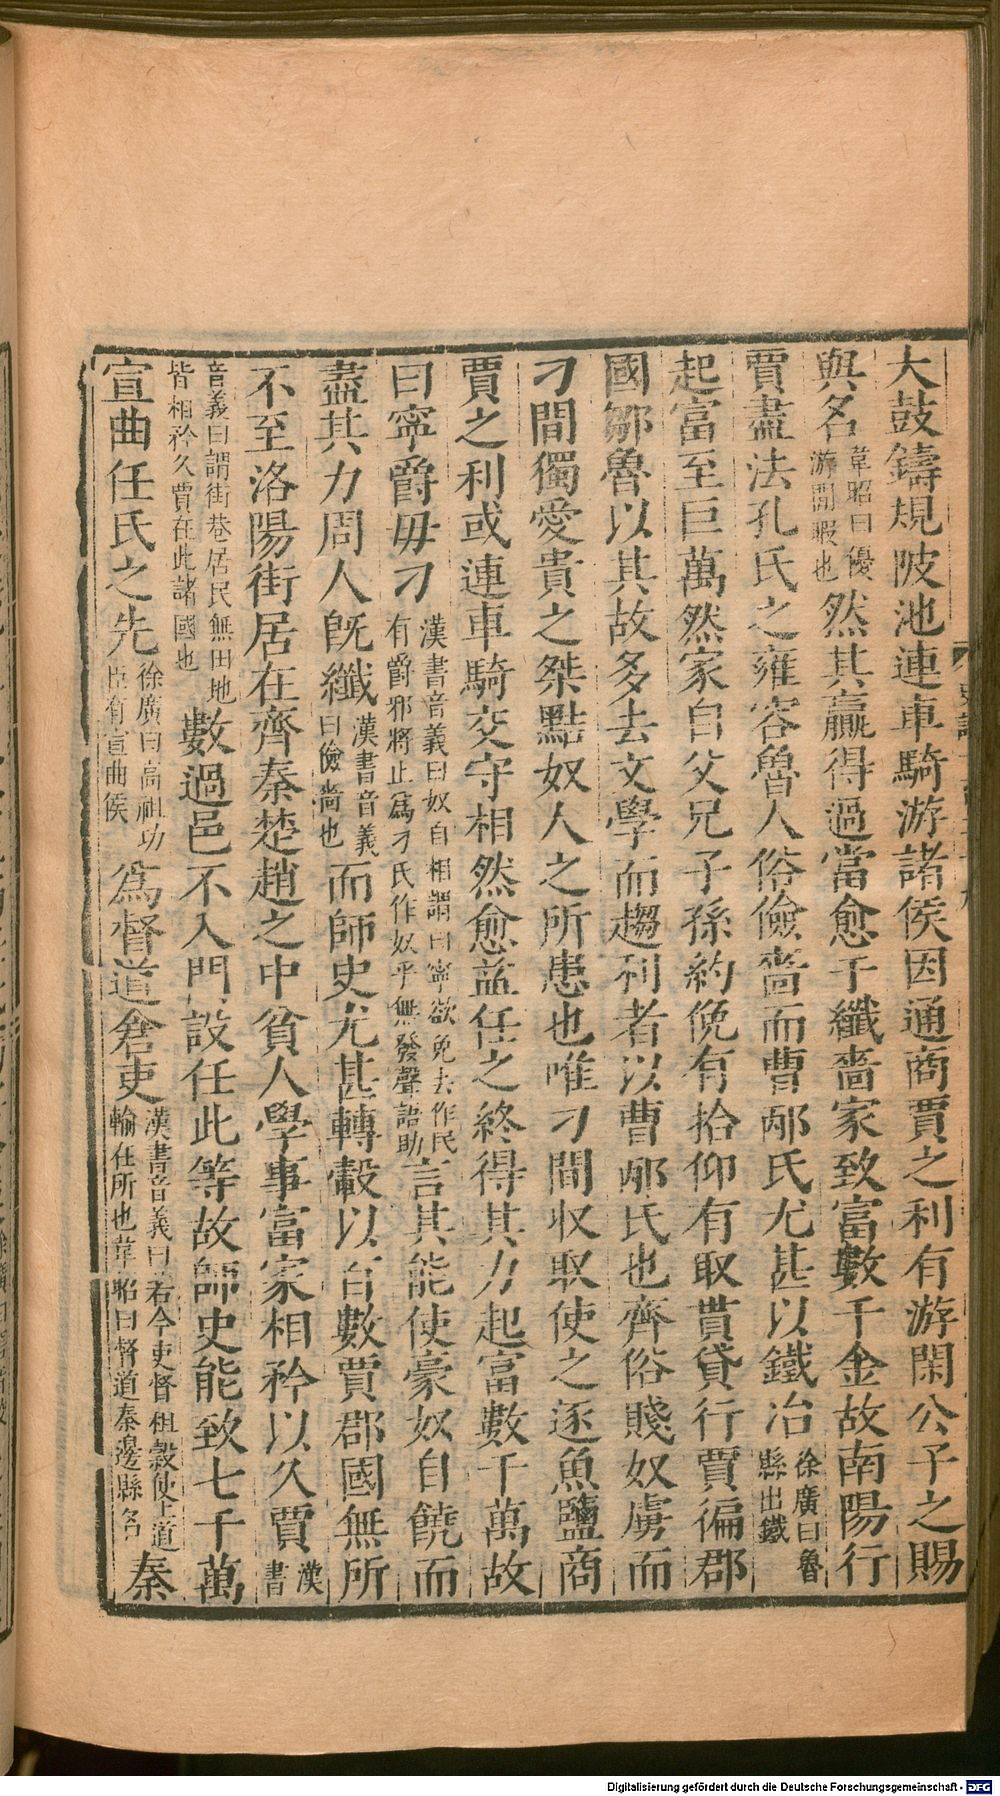 大鼓鑄規陂池連車騎游諸侯因通商賈之利有游閑公子之賜
與名韋昭曰優游閒暇也然其贏得過當愈于纖嗇家致富數千金故南陽行
賈盡法孔氏之雍容魯人俗儉嗇而曹邴氏尤甚以鐵冶徐廣曰魯縣出鐵
起富至巨萬然家自父兄子孫約俛有拾仰有取貰貸行賈徧郡
國鄒魯以其故多去文學而趨利者以曹邴氏也齊俗賤奴虜而
刁間獨愛貴之桀黠奴人之所患也唯刁間収取使之逐魚鹽商
賈之利或連車騎交守相然愈益任之終得其力起富數千萬故
曰寧爵毋刁漢書音義曰奴自相謂曰寧欲免去作民有爵邪將止爲刁氏作奴乎無發聲語助言其能使豪奴自饒而
盡其力周人旣纖漢書音義曰儉嗇也而師史尤甚轉轂以百數賈郡國無所
不至洛陽街居在齊秦楚趙之中貧人學事富家相矜以久賈漢書
音義曰謂街巷居民無田地皆相矜久賈在此諸國也數過邑不入門設任此等故師史能致七千萬
宣曲任氏之先徐廣曰高祖功臣有宣曲侯爲督道倉吏漢書音義曰若今吏督租穀使上道輸在所也韋昭曰督道秦邊縣名秦
Digitalisierung gefördert durch die Deutsche Forschungsgemeinschaft - DFG